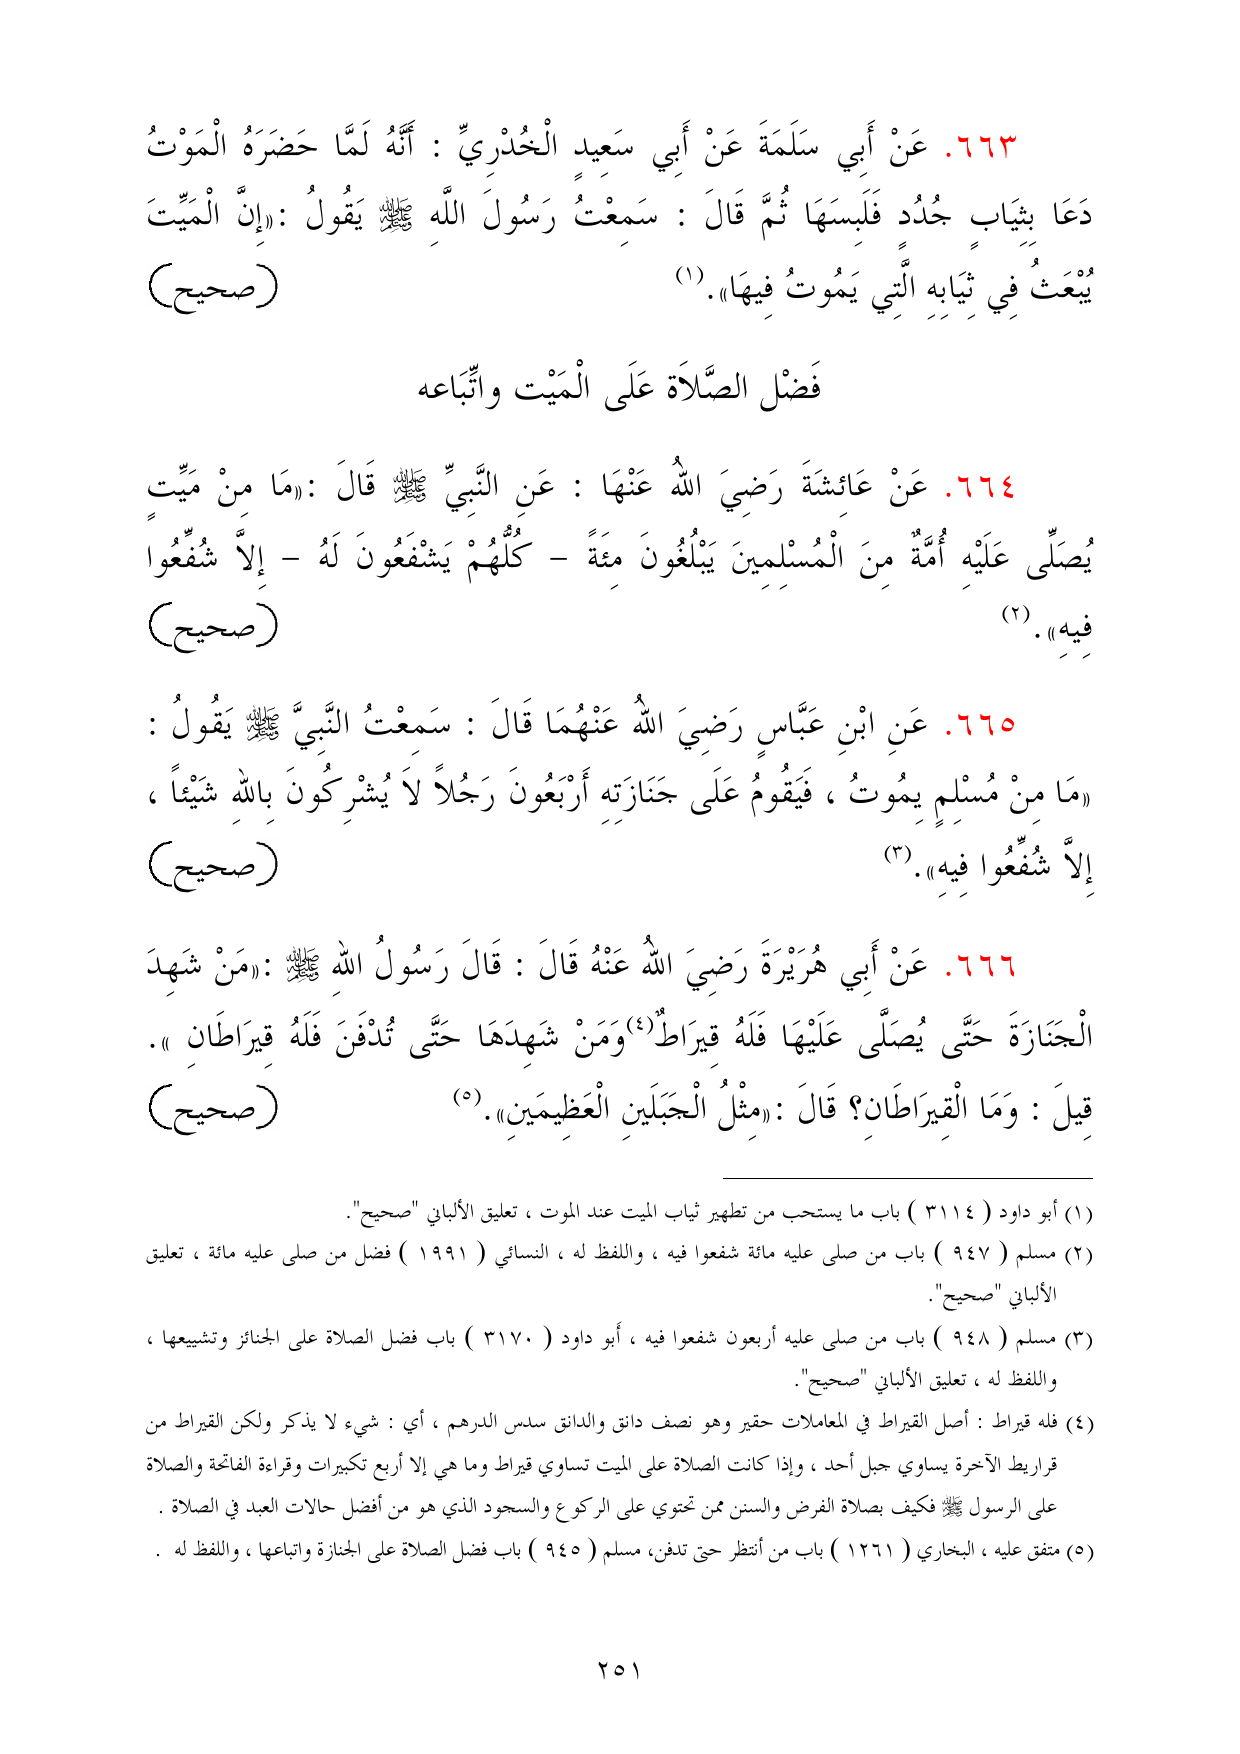 ٦٦٣. عَنْ أَبِي سَلَمَةَ عَنْ أَبِي سَعِيدٍ الْخُدْرِيِّ : أَنَّهُ لَمَّا حَضَرَهُ الْمَوْتُ
دَعَا بِثِيَابٍ جُدُدٍ فَلَبِسَهَا ثُمَّ قَالَ : سَمِعْتُ رَسُولَ اللَّهِ ﷺ يَقُولُ :«إِنَّ الْمَيِّتَ
يُبْعَثُ فِي ثِيَابِهِ الَّتِي يَمُوتُ فِيهَا».(١) (صحيح)
فَضْل الصَّلاَة عَلَى الْمَيْت واتِّبَاعه
٦٦٤. عَنْ عَائِشَةَ رَضِيَ اللهُ عَنْهَا : عَنِ النَّبِيِّ ﷺ قَالَ :«مَا مِنْ مَيِّتٍ
يُصَلِّى عَلَيْهِ أُمَّةٌ مِنَ الْمُسْلِمِينَ يَبْلُغُونَ مِئَةً – كُلُّهُمْ يَشْفَعُونَ لَهُ – إِلاَّ شُفِّعُوا
فِيهِ».(٢) (صحيح)
٦٦٥. عَنِ ابْنِ عَبَّاسٍ رَضِيَ اللهُ عَنْهُمَا قَالَ : سَمِعْتُ النَّبِيَّ ﷺ يَقُولُ :
«مَا مِنْ مُسْلِمٍ يِمُوتُ ، فَيَقُومُ عَلَى جَنَازَتِهِ أَرْبَعُونَ رَجُلاً لاَ يُشْرِكُونَ بِاللهِ شَيْئاً ،
إِلاَّ شُفِّعُوا فِيهِ».(٣) (صحيح)
٦٦٦. عَنْ أَبِي هُرَيْرَةَ رَضِيَ اللهُ عَنْهُ قَالَ : قَالَ رَسُولُ اللهِ ﷺ :«مَنْ شَهِدَ
الْجَنَازَةَ حَتَّى يُصَلَّى عَلَيْهَا فَلَهُ قِيرَاطٌ(٤)وَمَنْ شَهِدَهَا حَتَّى تُدْفَنَ فَلَهُ قِيرَاطَانِ ».
قِيلَ : وَمَا الْقِيرَاطَانِ؟ قَالَ :«مِثْلُ الْجَبَلَينِ الْعَظِيمَينِ».(٥) (صحيح)
(١) أبو داود ( ٣١١٤ ) باب ما يستحب من تطهير ثياب الميت عند الموت ، تعليق الألباني "صحيح".
(٢) مسلم ( ٩٤٧ ) باب من صلى عليه مائة شفعوا فيه ، واللفظ له ، النسائي ( ١٩٩١ ) فضل من صلى عليه مائة ، تعليق
الألباني "صحيح".
(٣) مسلم ( ٩٤٨ ) باب من صلى عليه أربعون شفعوا فيه ، أبو داود ( ٣١٧٠ ) باب فضل الصلاة على الجنائز وتشييعها ،
واللفظ له ، تعليق الألباني "صحيح".
(٤) فله قيراط : أصل القيراط في المعاملات حقير وهو نصف دانق والدانق سدس الدرهم ، أي : شيء لا يذكر ولكن القيراط من
قراريط الآخرة يساوي جبل أحد ، وإذا كانت الصلاة على الميت تساوي قيراط وما هي إلا أربع تكبيرات وقراءة الفاتحة والصلاة
على الرسول ﷺ فكيف بصلاة الفرض والسنن ممن تحتوي على الركوع والسجود الذي هو من أفضل حالات العبد في الصلاة .
(٥) متفق عليه ، البخاري ( ١٢٦١ ) باب من أنتظر حتى تدفن، مسلم ( ٩٤٥ ) باب فضل الصلاة على الجنازة واتباعها ، واللفظ له .
٢٥١